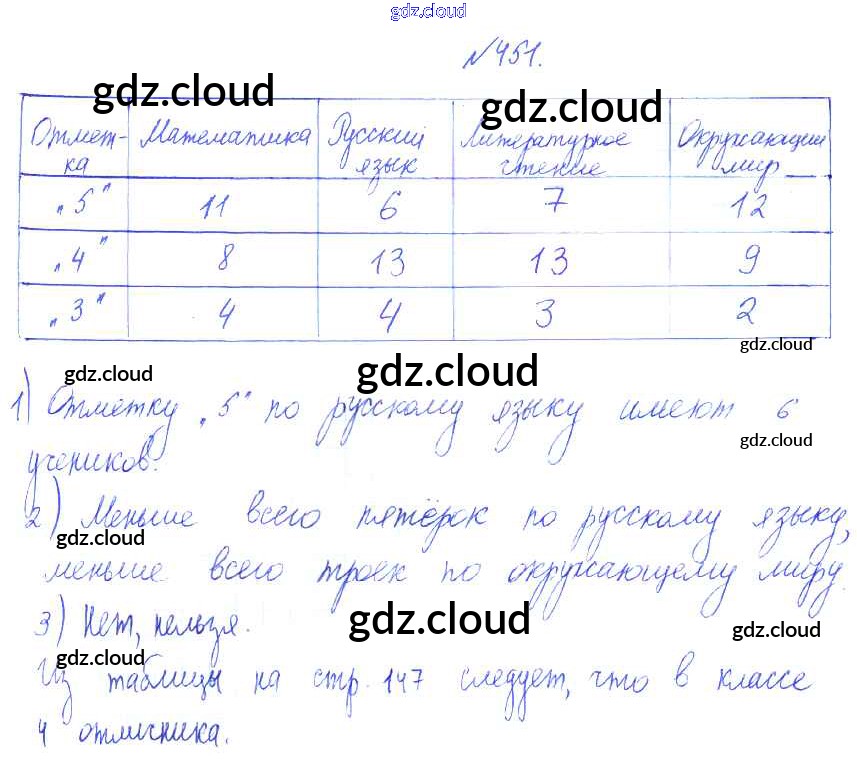 gdz.cloud
№451.
gdz.cloud gdz.cloud
Отмет- Математика Русский Литературное Окружающий
ка язык чтение мир
„5" 11 6 7 12
„4" 8 13 13 9
„3" 4 4 3 2
gdz.cloud
gdz.cloud gdz.cloud
1) Отметку „5" по русскому языку имеют 6
gdz.cloud
учеников.
2) Меньше всего пятёрок по русскому языку,
gdz.cloud
меньше всего троек по окружающему миру.
3) Нет, нельзя.
gdz.cloud
gdz.cloud
Из таблицы на стр. 147 следует, что в классе
4 отличника.